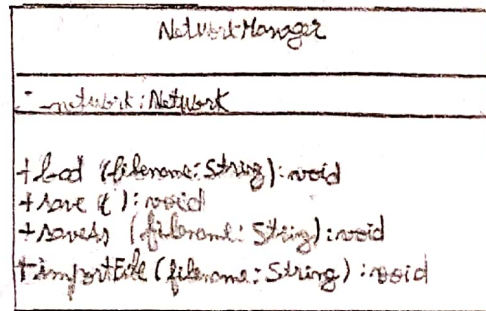 NetworkManager
- _network: Network
+ load (filename: String): void
+ save ( ): void
+ saveAs (filename: String): void
+ importFile (filename: String): void